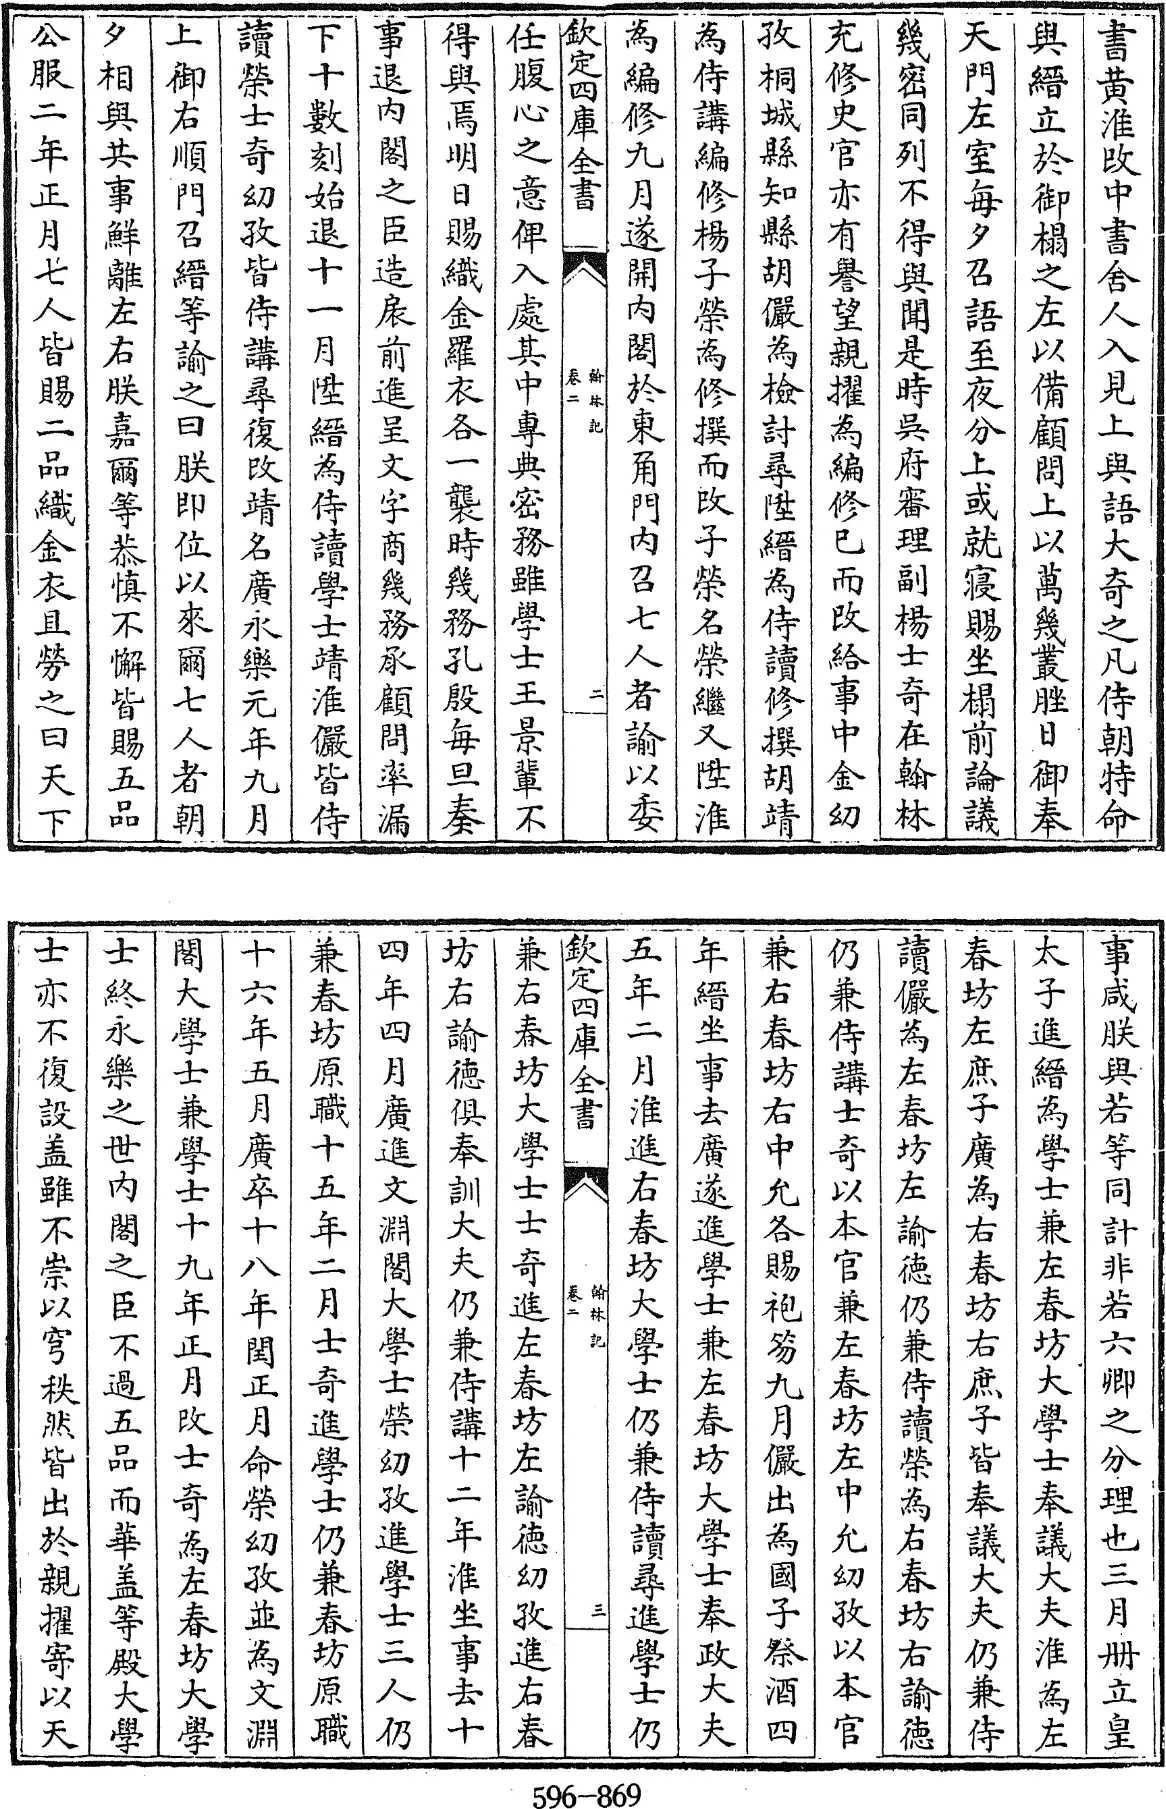 書黄淮改中書舍人入見上與語大奇之凡侍朝特命
與縉立於御榻之左以備顧問上以萬幾叢脞日御奉
天門左室每夕召語至夜分上或就寢賜坐榻前論議
幾密同列不得與聞是時吳府審理副楊士奇在翰林
充修史官亦有譽望親擢為編修已而改給事中金幼
孜桐城縣知縣胡儼為檢討尋陞縉為侍讀修撰胡靖
為侍講編修楊子榮為修撰而改子榮名榮繼又陞淮
為編修九月遂開内閣於東角門内召七人者諭以委
欽定四庫全書
翰林記
卷二
二
任腹心之意俾入處其中專典密務雖學士王景輩不
得與焉明日賜織金羅衣各一襲時幾務孔殷每旦奏
事退内閣之臣造扆前進呈文字商幾務承顧問率漏
下十數刻始退十一月陞縉為侍讀學士靖淮儼皆侍
讀榮士奇幼孜皆侍講尋復改靖名廣永樂元年九月
上御右順門召縉等諭之曰朕即位以來爾七人者朝
夕相與共事鮮離左右朕嘉爾等恭慎不懈皆賜五品
公服二年正月七人皆賜二品織金衣且勞之曰天下
事咸朕與若等同計非若六卿之分理也三月冊立皇
太子進縉為學士兼左春坊大學士奉議大夫淮為左
春坊左庶子廣為右春坊右庶子皆奉議大夫仍兼侍
讀儼為左春坊左諭徳仍兼侍讀榮為右春坊右諭徳
仍兼侍講士奇以本官兼左春坊左中允幼孜以本官
兼右春坊右中允各賜袍笏九月儼出為國子祭酒四
年縉坐事去廣遂進學士兼左春坊大學士奉政大夫
五年二月淮進右春坊大學士仍兼侍讀尋進學士仍
欽定四庫全書
翰林記
卷二
三
兼右春坊大學士士奇進左春坊左諭徳幼孜進右春
坊右諭徳俱奉訓大夫仍兼侍講十二年淮坐事去十
四年四月廣進文淵閣大學士榮幼孜進學士三人仍
兼春坊原職十五年二月士奇進學士仍兼春坊原職
十六年五月廣卒十八年閏正月命榮幼孜並為文淵
閣大學士兼學士十九年正月改士奇為左春坊大學
士終永樂之世内閣之臣不過五品而華盖等殿大學
士亦不復設盖雖不崇以穹秩然皆出於親擢寄以天
596-869